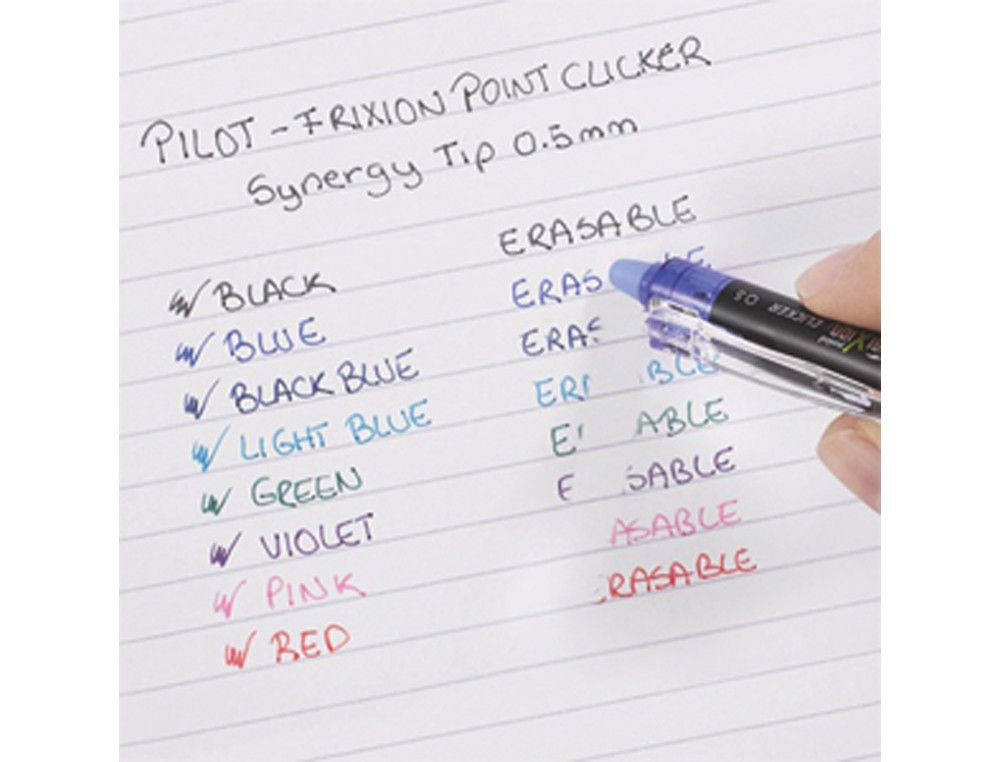 PILOT - FRIXION POINT CLICKER
Synergy Tip 0.5mm
ERASABLE
BLACK
ERAS
BLUE
ERAS
BLACK BLUE
ER BLE
LIGHT BLUE
E ABLE
GREEN
E SABLE
VIOLET
ASABLE
PINK
RASABLE
RED
CLICKER 0.5